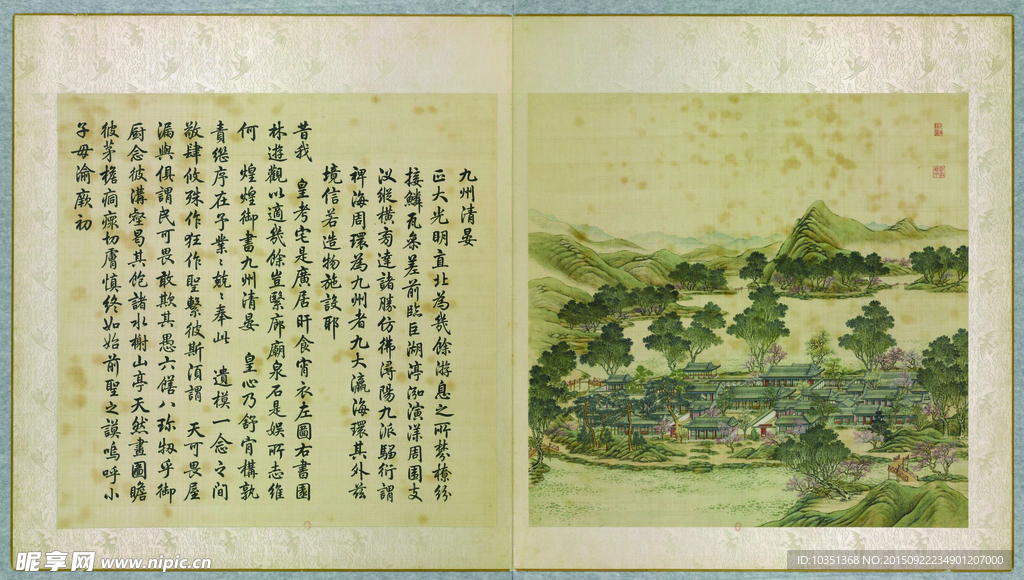 九州清晏
正大光明直北為幾餘游息之所棼橑紛
接鱗瓦參差前臨巨湖渟泓演漾周圍支
汊縱橫旁達諸勝仿彿潯陽九派騶衍謂
裨海周環為九州者九大瀛海環其外茲
境信若造物施設耶
昔我 皇考宅是廣居旰食宵衣左圖右書園
林遊觀以適幾餘豈緊廊廟泉石是娛所志維
何 煌煌御書九州清晏 皇心乃舒肯構孰
責繼序在予業業兢兢奉此 遺模一念之間
敬肆攸殊作狂作聖繫彼斯須謂 天可畏屋
漏與俱謂民可畏敢欺其愚六膳八珍牣乎御
廚念彼溝壑曷其飽諸水榭山亭天然畫圖瞻
彼茅檐痌瘝切膚慎終如始前聖之謨嗚呼小
子毋渝厥初
昵享网 www.nipic.cn
ID:10351368 NO:20150922234901207000